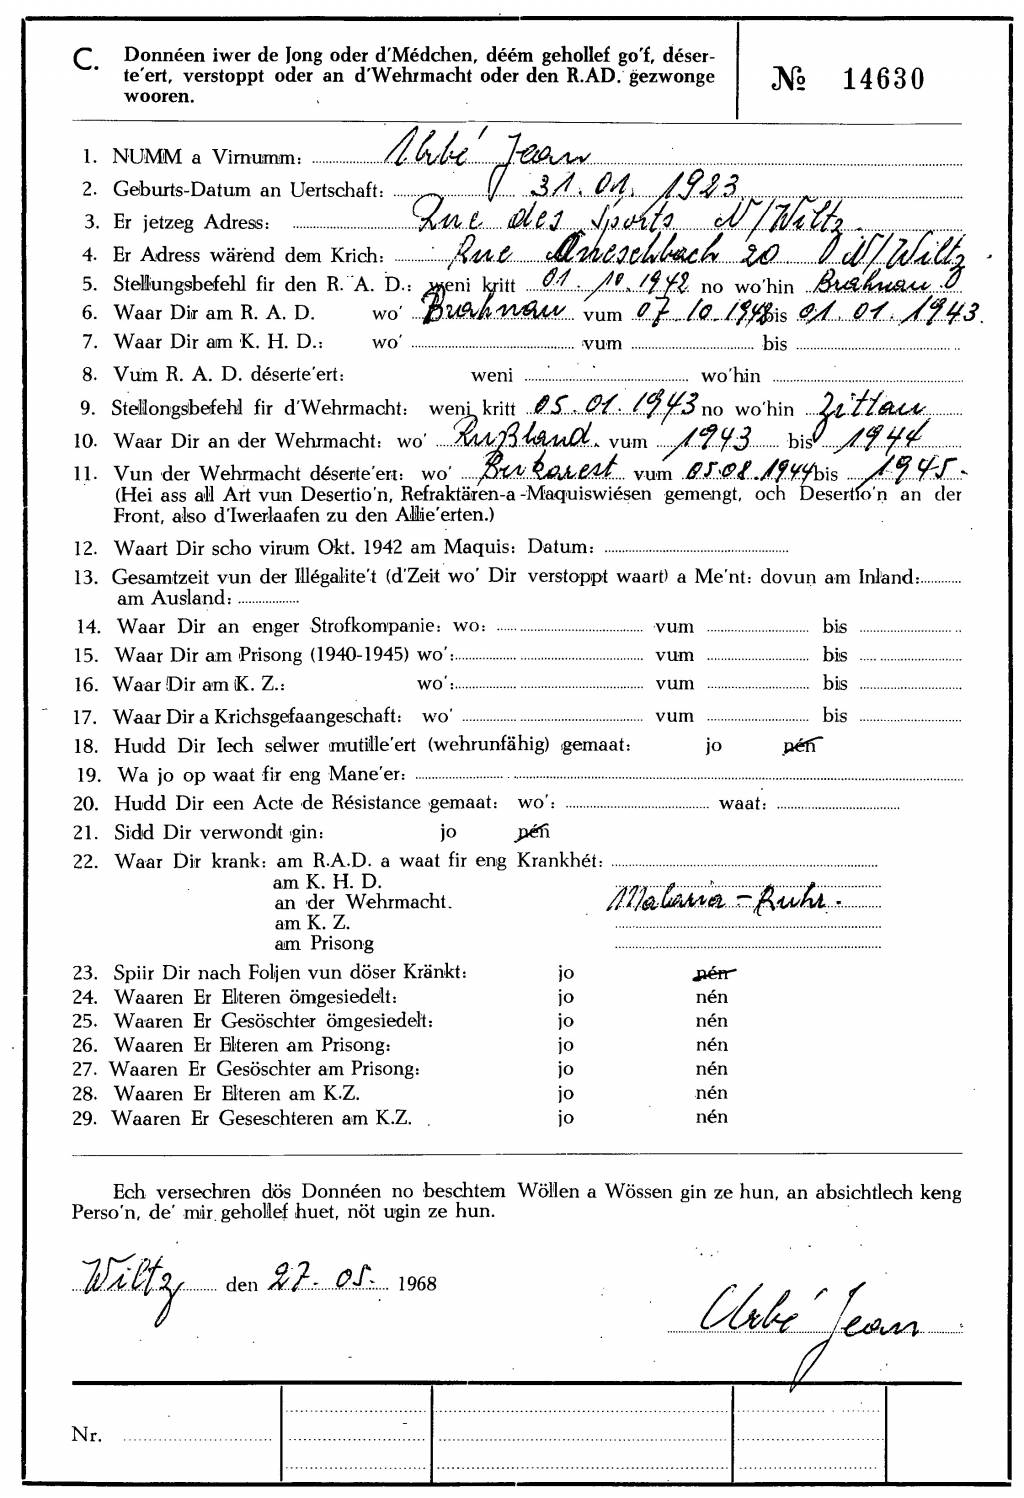 C. Donnéen iwer de Jong oder d'Médchen, déém gehollef go'f, déser-
te'ert, verstoppt oder an d'Wehrmacht oder den R.AD. gezwonge
wooren.
№ 14630
1. NUMM a Virnumm: Urbé Jean
2. Geburts-Datum an Uertschaft: 31. 01. 1923
3. Er jetzeg Adress: Rue des Sports N/Wiltz.
4. Er Adress wärend dem Krich: Rue 20 N/Wiltz.
5. Stellungsbefehl fir den R. A. D.: weni kritt 01. 10. 1942 no wo'hin Brahnau
6. Waar Dir am R. A. D. wo' Brahnau vum 07 10. 1942 bis 01. 01. 1943.
7. Waar Dir am K. H. D.: wo' vum bis
8. Vum R. A. D. déserte'ert: weni wo'hin
9. Stellongsbefehl fir d'Wehrmacht: weni kritt 05. 01. 1943 no wo'hin Zittau
10. Waar Dir an der Wehrmacht: wo' Rußland. vum 1943 bis 1944
11. Vun der Wehrmacht déserte'ert: wo' Bukarest vum 05.08.1944 bis 1945.
(Hei ass all Art vun Desertio'n, Refraktären-a-Maquiswiésen gemengt, och Desertio'n an der
Front, also d'Iwerlaafen zu den Allie'erten.)
12. Waart Dir scho virum Okt. 1942 am Maquis: Datum:
13. Gesamtzeit vun der Illégalite't (d'Zeit wo' Dir verstoppt waart) a Me'nt: dovun am Inland:
am Ausland:
14. Waar Dir an enger Strofkompanie: wo: vum bis
15. Waar Dir am Prisong (1940-1945) wo': vum bis
16. Waar Dir am K. Z.: wo': vum bis
17. Waar Dir a Krichsgefaangeschaft: wo' vum bis
18. Hudd Dir Iech selwer mutille'ert (wehrunfähig) gemaat: jo nén
19. Wa jo op waat fir eng Mane'er:
20. Hudd Dir een Acte de Résistance gemaat: wo': waat:
21. Sidd Dir verwondt gin: jo nén
22. Waar Dir krank: am R.A.D. a waat fir eng Krankhét:
am K. H. D.
an der Wehrmacht. Malaria - Ruhr.
am K. Z.
am Prisong
23. Spiir Dir nach Foljen vun döser Kränkt: jo nén
24. Waaren Er Elteren ömgesiedelt: jo nén
25. Waaren Er Gesöschter ömgesiedelt: jo nén
26. Waaren Er Elteren am Prisong: jo nén
27. Waaren Er Gesöschter am Prisong: jo nén
28. Waaren Er Elteren am K.Z. jo nén
29. Waaren Er Geseschteren am K.Z. jo nén
Ech versechren dös Donnéen no beschtem Wöllen a Wössen gin ze hun, an absichtlech keng
Perso'n, de' mir gehollef huet, nöt ugin ze hun.
Wiltz den 27. 05. 1968
Urbé Jean
Nr.